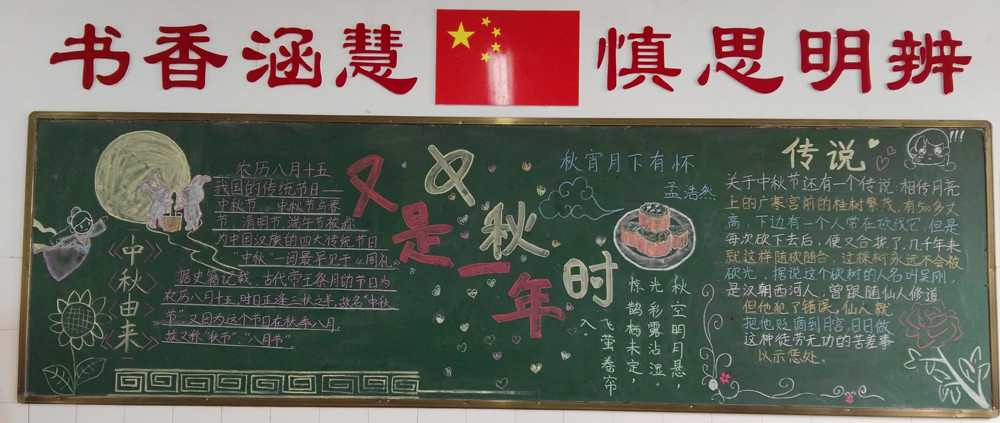 书香涵慧
慎思明辨
中秋由来
农历八月十五
我国的传统节日——
中秋节。中秋节与春
节、清明节、端午节被称
为中国汉族的四大传统节日
“中秋”一词最早见于《周礼》
据史籍记载，古代帝王祭月的节日为
农历八月十五，时日正逢三秋之半，故名“中秋
节”又因为这个节日在秋季八月，
故又称“秋节”“八月节”
又是一年
中秋时
秋宵月下有怀
孟浩然
秋空明月悬，
光彩露沾湿。
惊鹊栖未定，
飞萤卷帘
入。
传说
关于中秋节还有一个传说：相传月亮
上的广寒宫前的桂树繁茂，有500多丈
高，下边有一个人常在砍伐它，但是
每次砍下去后，便又合拢了，几千年来
就这样随砍随合，这棵树永远不会被
砍光，据说这个砍树的人名叫吴刚，
是汉朝西河人，曾跟随仙人修道
但他犯了错误，仙人就
把他贬谪到月宫，日日做
这种徒劳无功的苦差事
以示惩处。